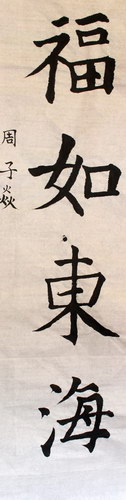 福如東海
周子焱